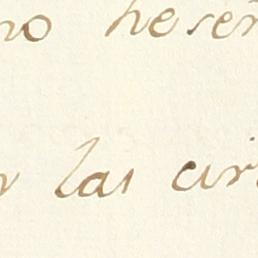 no hesen
las cir